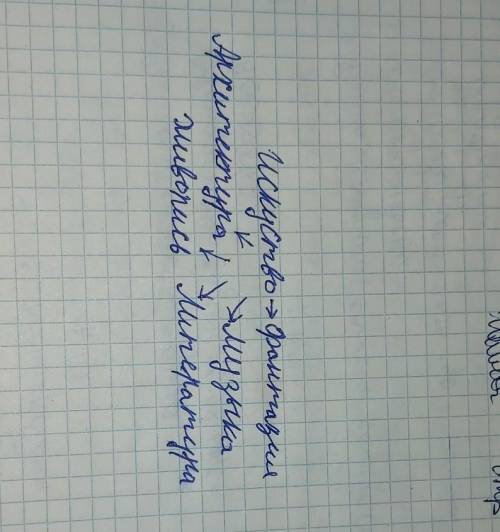 Искуство → фантазия
Архитектура музыка
живопись Литература